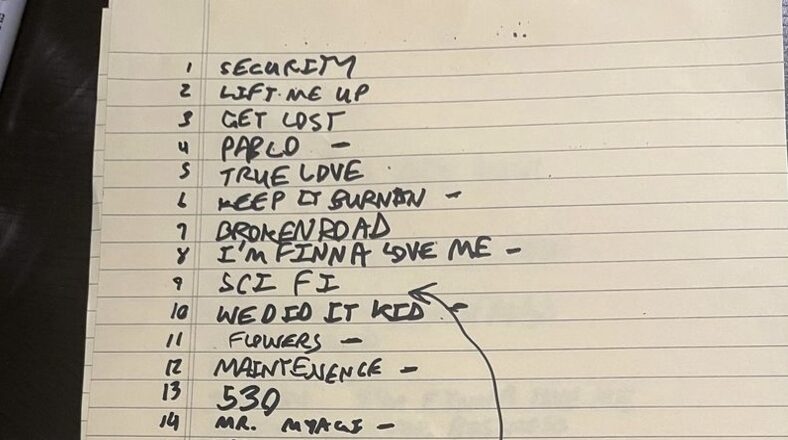 1 SECURITY
2 LIFT ME UP
3 GET LOST
4 PABLO -
5 TRUE LOVE
6 KEEP IT BURNIN -
7 BROKEN ROAD
8 I'M FINNA LOVE ME -
9 SCI FI
10 WE DID IT KID -
11 FLOWERS -
12 MAINTENENCE -
13 530
14 MR. MYAGI -